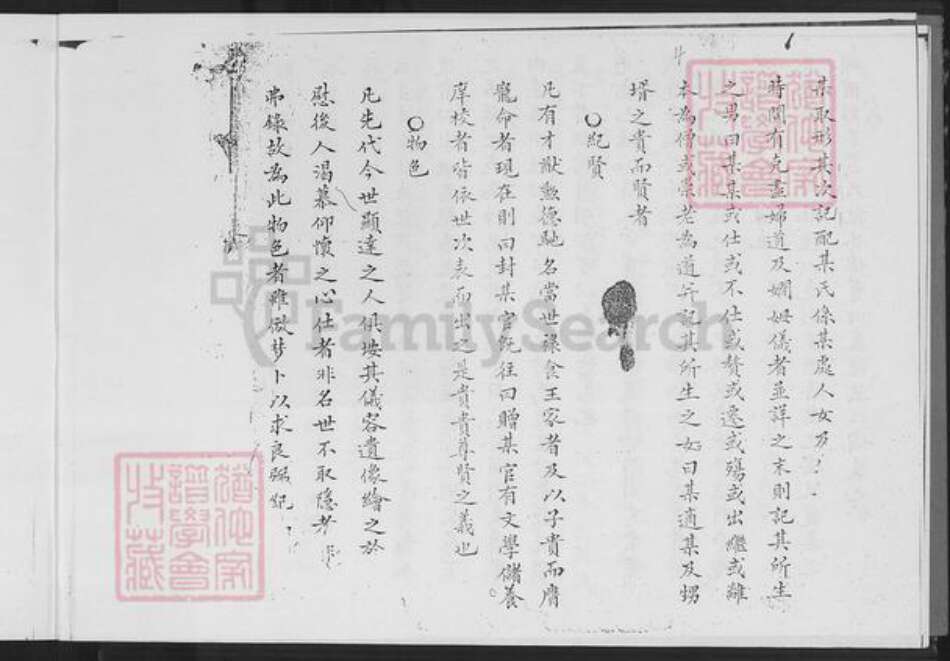 某取形其次記配某氏係某處人女
時間有克盡婦道及嫻姆儀者並詳之末則記其所生
之男曰某某或仕或不仕或贅或逸或殤或出繼或離
本為僧或崇老為道並記其所生之女曰某適某及甥
壻之貴而賢者
○紀賢
凡有才猷勳德馳名當世祿食王家者及以子貴而膺
寵命者現在則曰封某官既往曰贈某官有文學儲養
庠校者皆依世次表而出之是貴貴尊賢之義也
○物色
凡先代今世顯達之人俱按其儀容遺像繪之於
慰後人渴慕仰懷之心仕者非名世不取隱者非
弗錄故為此物色者雖倣夢卜以求良弼
FamilySearch
臺灣家譜學會收藏